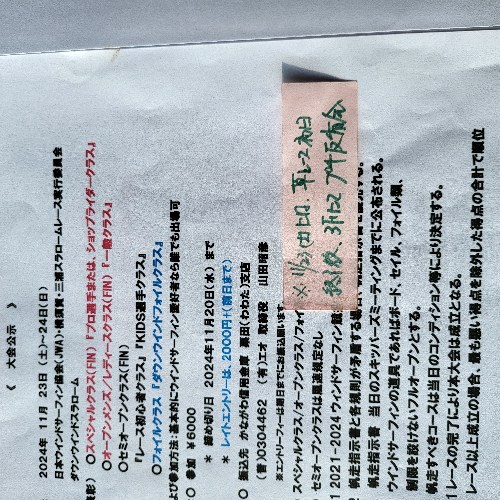 《 大会公示 》
2024年 11月 23日(土)~24日(日)
日本ウインドサーフィン協会(JWA)・横須賀・三浦スラロームレース実行委員会
ダウンウインドスラローム
○スペシャルクラス(FIN)『プロ選手または、ショップライダークラス』
○オープンメンズ/レディースクラス(FIN)『一般クラス』
○セミオープンクラス(FIN)
『レース初心者クラス』『KIDS選手クラス』
○フォイルクラス『ダウンウインドフォイルクラス』
参加方法:基本的にウインドサーフィン愛好者なら誰でも出場可
○ 参加 ¥6000
* 締め切り日 2024年11月20日(水)まで
* レイトエントリーは、2000円+(前日まで)
○ 振込先 かながわ信用金庫 粟田(わわた)支店
(普)0304462 (有)エオ 取締役 川田晴彦
※エントリーフィーは期日までにお振込願います。
スペシャルクラス/オープンクラス/フォイ
セミオープンクラスは風速規定なし
2021-2024 ウインドサーフィン競
帆走指示書と各規則が矛盾する場
帆走指示書 当日のスキッパーズミーティングまでに公布される。
ウインドサーフィンの道具であればボード、セイル、フォイル類、
制限を設けないフルオープンとする。
帆走すべきコースは当日のコンディション等により決定する。
レースの完了により本大会は成立となる。
レース以上成立の場合、最も悪い得点を除外した得点の合計で順位
※ 11/23(土)は、